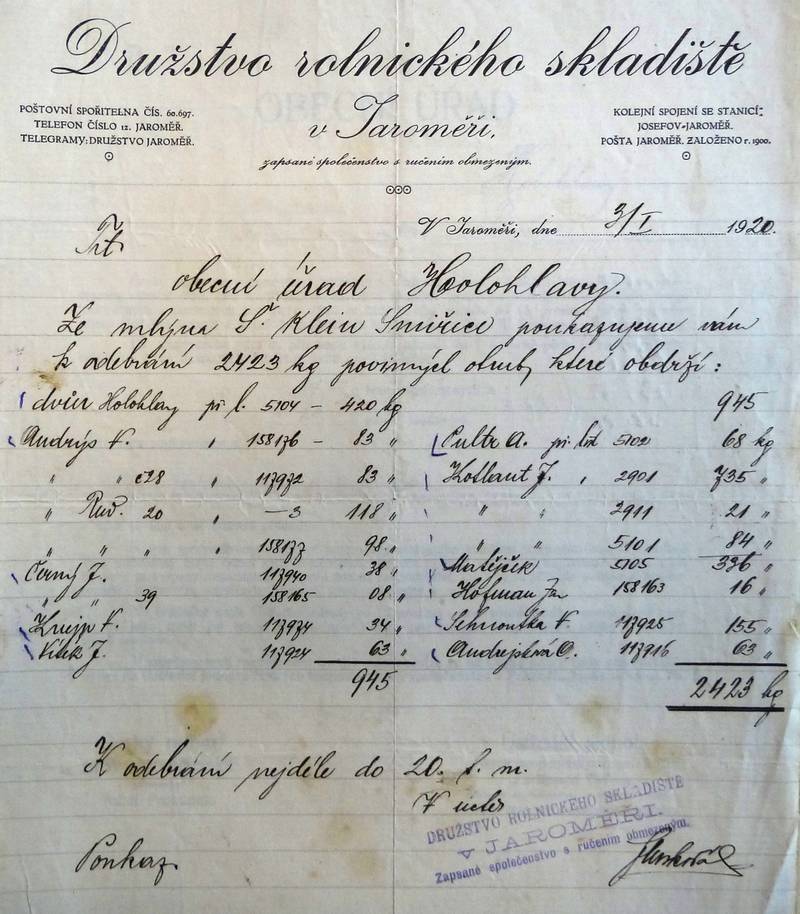 Družstvo rolnického skladiště
v Jaroměři,
zapsané společenstvo s ručením obmezeným.
POŠTOVNÍ SPOŘITELNA ČÍS. 60.697.
TELEFON ČÍSLO 12. JAROMĚŘ.
TELEGRAMY: DRUŽSTVO JAROMĚŘ.
KOLEJNÍ SPOJENÍ SE STANICÍ:
JOSEFOV-JAROMĚŘ.
POŠTA JAROMĚŘ. ZALOŽENO r. 1900.
V Jaroměři, dne 3/I 1920.
Tit.
obecní úřad Holohlavy.
Ze mlýna Š. Klein Smiřice poukazujeme vám
k odebrání 2423 kg povinných otrub, které obdrží:
dvůr Holohlavy při l. 5104 – 420 kg
Andrýs F. " 158176 – 83 "
" " č28 " 117972 83 "
" Rud. 20 " —3 118 "
" " " 158177 98 "
Černý J. 117940 38 "
" " 39 158165 08 "
Knejp F. 117974 34 "
Vítek J. 117924 63 "
945
945
Cultr A. při list 5102 68 kg
Kotlant J. " 2901 735 "
" " 2911 21 "
" " 5101 84 "
Matějček 5105 336 "
Hofman Jan 158163 16 "
Sehnoutka F 117925 155 "
Andrejsková O. 117916 63 "
2423 kg
K odebrání nejdéle do 20. t. m.
V úctě
Poukaz.
DRUŽSTVO ROLNICKÉHO SKLADIŠTĚ
V JAROMĚŘI.
Zapsané společenstvo s ručením obmezeným.